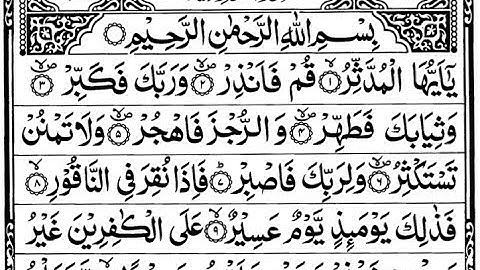 بِسْمِ اللهِ الرَّحْمٰنِ الرَّحِيْمِ
يٰۤاَيُّهَا الْمُدَّثِّرُ ۙ﴿۱﴾ قُمْ فَاَنْذِرْ ۪ۙ﴿۲﴾ وَرَبَّكَ فَكَبِّرْ ۪ۙ﴿۳﴾
وَثِيَابَكَ فَطَهِّرْ ۪ۙ﴿۴﴾ وَالرُّجْزَ فَاهْجُرْ ۪ۙ﴿۵﴾ وَلَا تَمْنُنْ
تَسْتَكْثِرُ ۪ۙ﴿۶﴾ وَلِرَبِّكَ فَاصْبِرْ ؕ﴿۷﴾ فَاِذَا نُقِرَ فِى النَّاقُوْرِ ۙ﴿۸﴾
فَذٰلِكَ يَوْمَىِٕذٍ يَّوْمٌ عَسِيْرٌ ۙ﴿۹﴾ عَلَى الْكٰفِرِيْنَ غَيْرُ